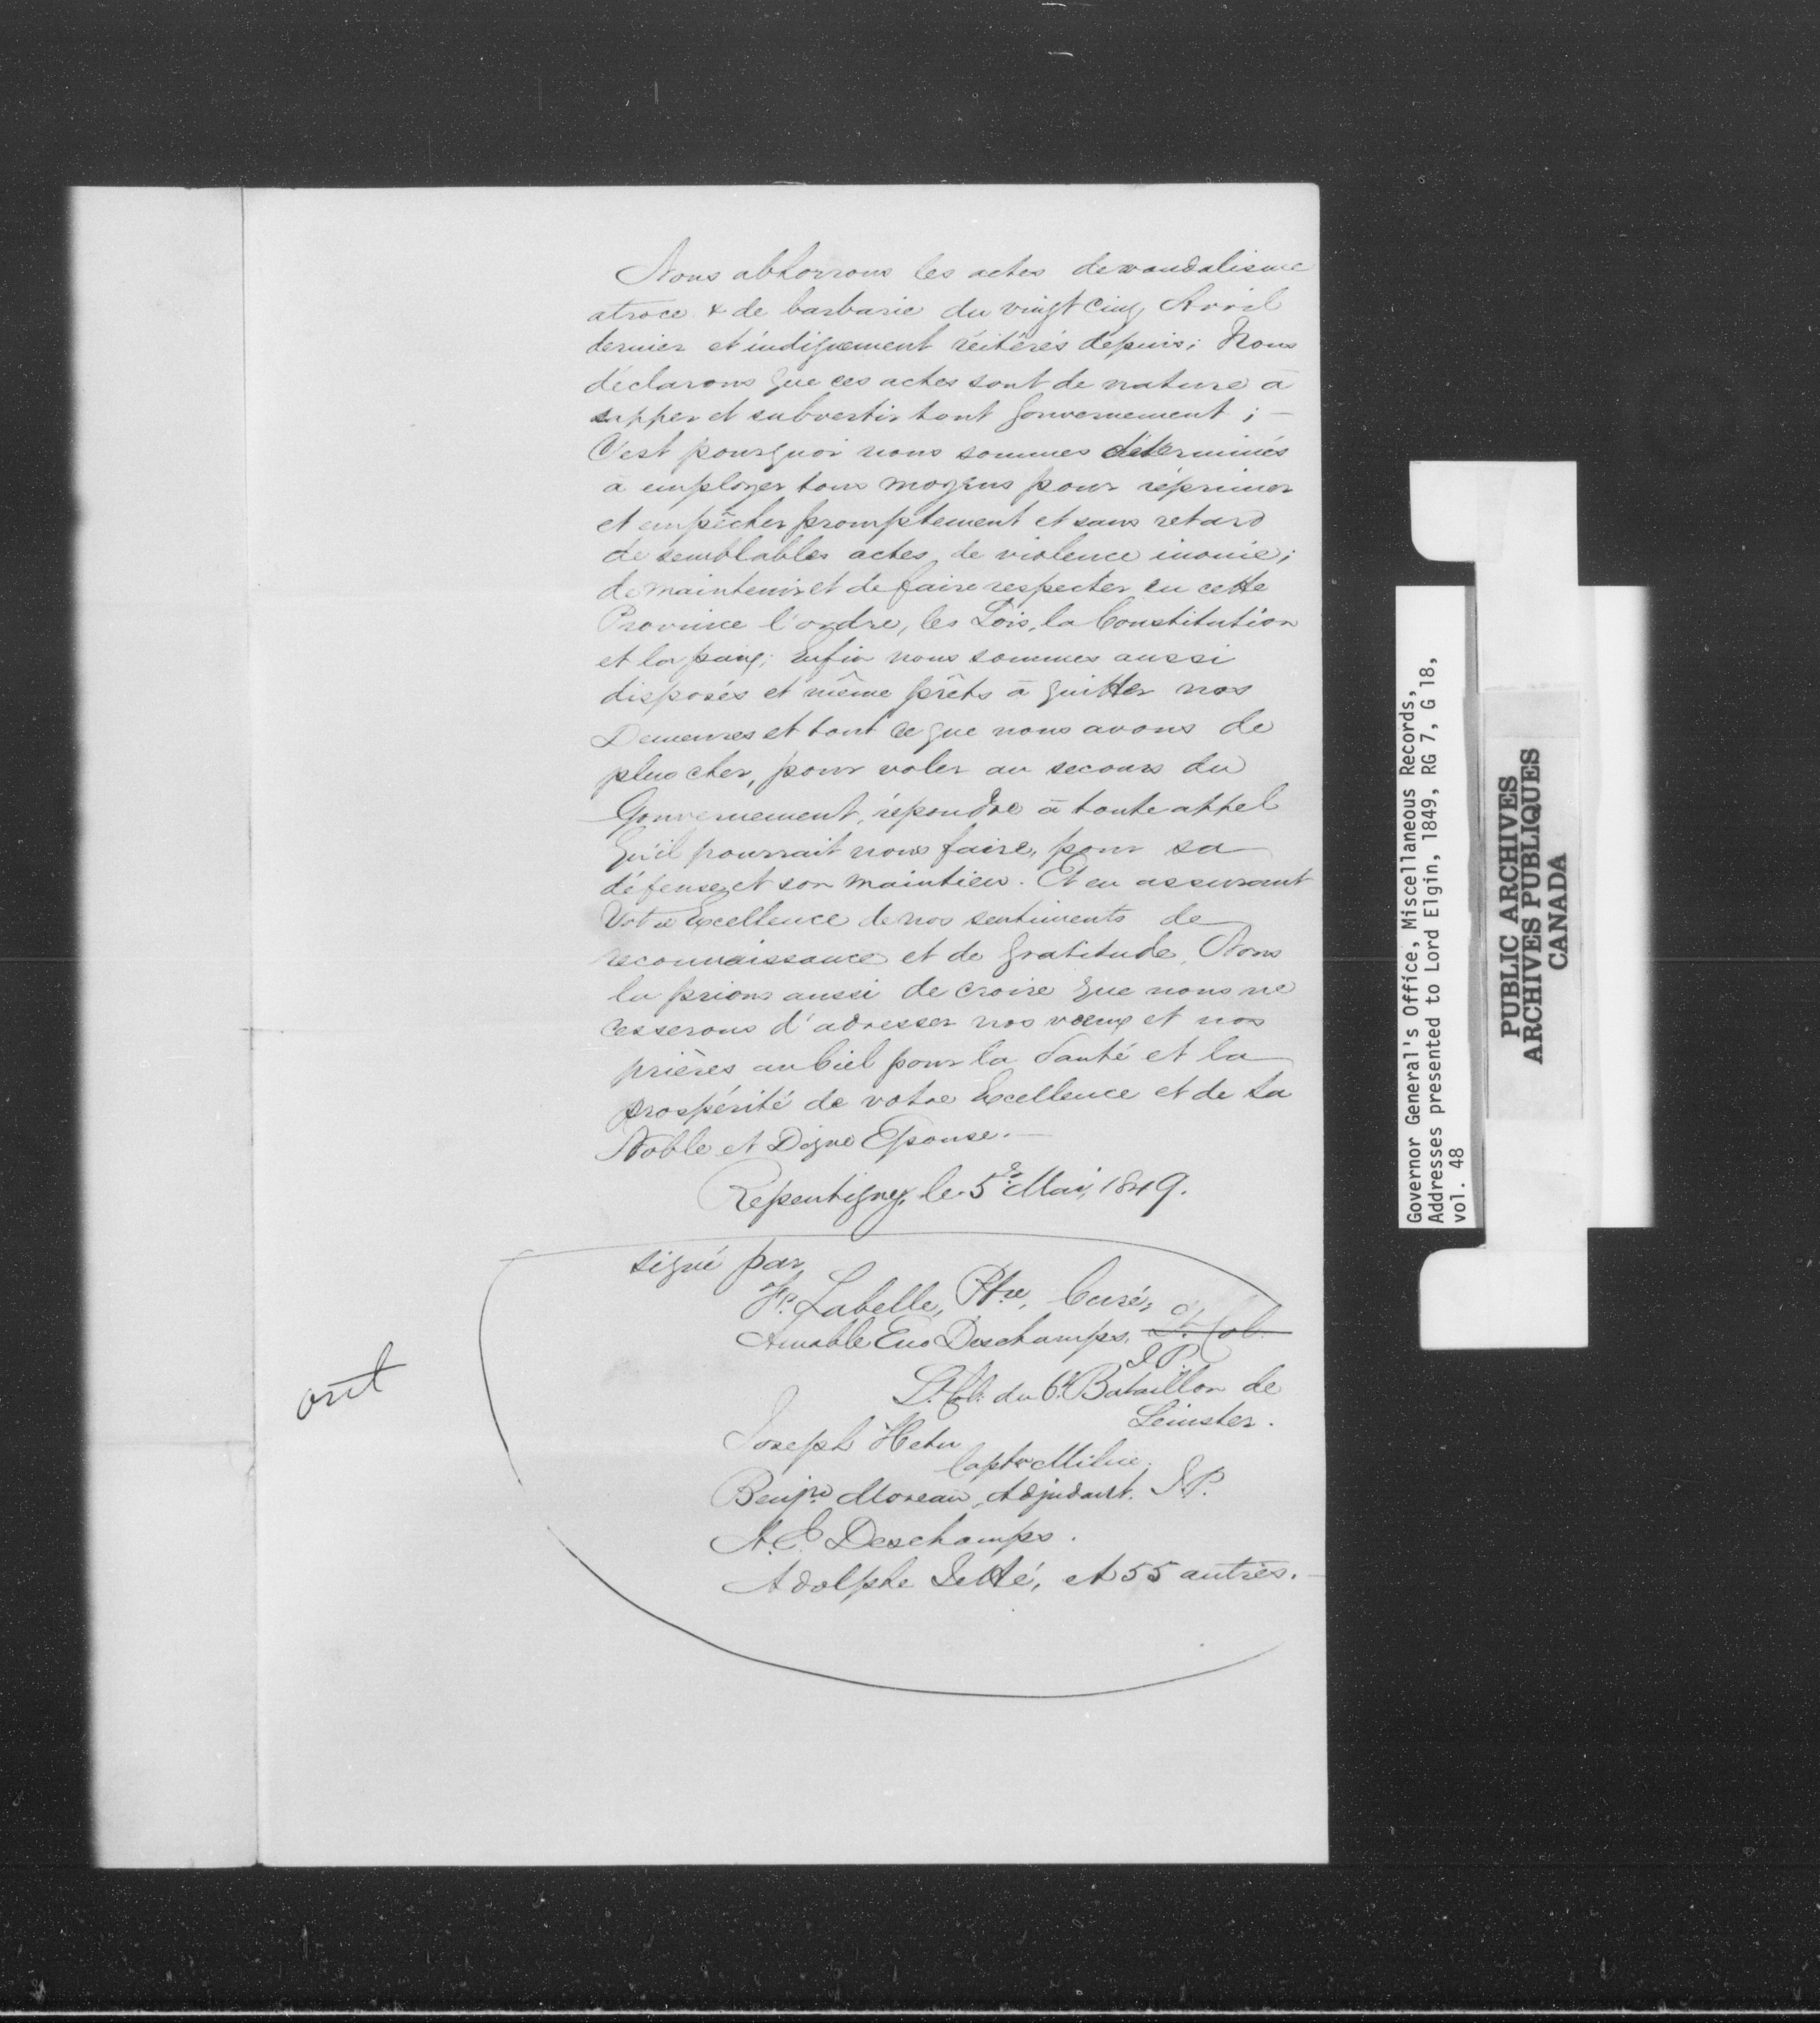 Nous abhorrons les actes de vandalisme
atroce & de barbarie du vingt cinq Avril
dernier et indignement réitérés depuis; Nous
déclarons que ces actes sont de nature à
sapper et subvertir tout gouvernement; —
C'est pourquoi nous sommes déterminés
a employer tous moyens pour réprimer
et empêcher promptement et sans retard
de semblables actes de violence inouie;
de maintenir et de faire respecter en cette
Province l'ordre, les Lois, la Constitution
et la paix; enfin nous sommes aussi
disposés et même prêts à quitter nos
Demeures et tout ce que nous avons de
plus cher, pour voler au secours du
Gouvernement, répondre à toute appel
qu'il pourrait nous faire, pour sa
défense et son maintien. Et en assurant
Votre Excellence de nos sentiments de
reconnaissance et de gratitude, Nous
la prions aussi de croire que nous ne
cesserons d'adresser nos vœux et nos
prières au Ciel pour la Santé et la
prospérité de votre Excellence et de Sa
Noble et Digne Epouse. —
Repentigny, le 5 Mai, 1849.
signé par
Labelle, Ptre, Curé,
Amable Eno Deschamps, Lt. Col.
J.P.
Lt. Col. du 6e Bataillon de
Leinster.
Joseph Hetu
Captn Milice.
Benjn Moreau, Adjudant. J.P.
A. E. Deschamps.
Adolphe Jetté, et 55 autres. —
out
Governor General's Office, Miscellaneous Records,
Addresses presented to Lord Elgin, 1849, RG 7, G 18,
vol. 48
PUBLIC ARCHIVES
ARCHIVES PUBLIQUES
CANADA